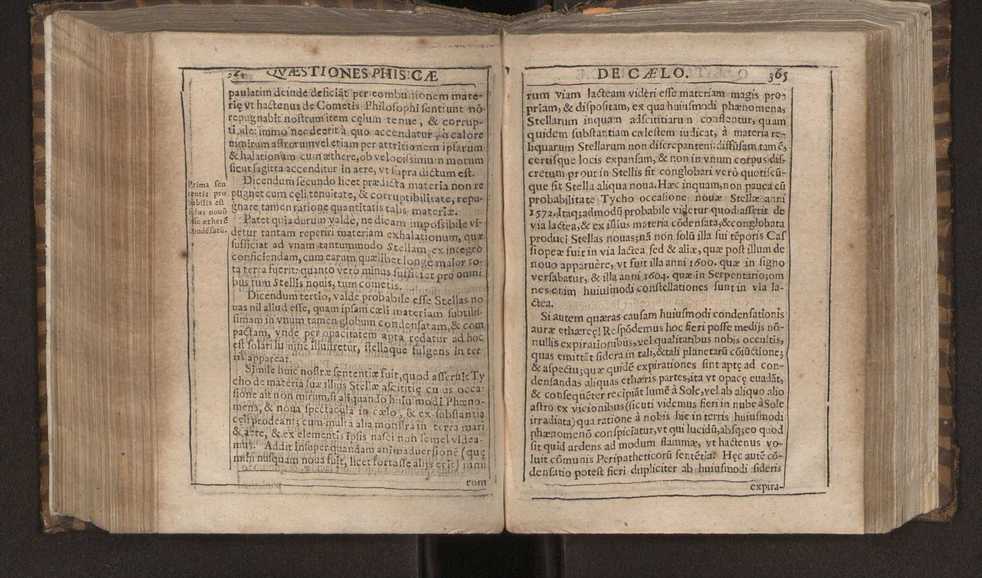 364 QVÆSTIONES PHISICÆ
paulatim deinde deficiãt per combustionem mate-
rię vt hactenus de Cometis Philosophi sentiunt nõ
repugnabit nostrum item cęlum tenue, & corrup-
immo nec deerit à quo accendatur, à calore
nimirum astrorum vel etiam per attritionem ipsarum
exhalationum cum æthere, ob velocissimum motum
sicut sagitta accenditur in aere, vt supra dictum est.
Dicendum secundo licet prædicta materia non re
pugnet cum cęli tenuitate, & corruptibilitate, repu-
gnare tamen ratione quantitatis talis materiæ.
Prima sen
tentia pro
babilis est
stellas nouas
ex æthere
condẽsato.
Patet quia durum valde, ne dicam impossibile vi-
detur tantam reperiri materiam exhalationum, quæ
sufficiat ad vnam tantummodo Stellam ex integro
conficiendam, cum earum quælibet longe maior to-
ta terra fuerit: quanto verò minus sufficiat pro omni
bus tum Stellis nouis, tum cometis.
Dicendum tertio, valde probabile esse Stellas no
uas nil aliud esse, quam ipsam cæli materiam subtilis-
simam in vnum tamen globum condensatam, & com
pactam, vnde per opacitatem apta redatur ad hoc
est solari lumine illustretur, stellaque fulgens in ter
ris appareat.
Simile huic nostræ sententiæ fuit, quod asseruit Ty
cho de materia suæ illius Stellæ ascititię cuius occa
sione ait non mirum, si aliquando huiusmodi Phæno-
mena, & noua spectacula in cælo, & ex substantia
cęli prodeant; cum multa alia monstra in terra mari
& aere, & ex elementis ipsis nasci non semel videa-
mur. Addit insuper quandam animaduersionẽ (quę
mihi nusquam noua fuit, licet fortasse alijs erit) nimi
rum
DE CÆLO. 365
rum viam lacteam videri esse materiam magis pro-
priam, & dispositam, ex qua huiusmodi phænomena,
Stellarum inquam adscititiarum constentur, quam
quidem substantiam cælestem iudicat, à materia re-
liquarum Stellarum non discrepantem: diffusam tamẽ,
certisque locis expansam, & non in vnum corpus dis-
cretum prout in Stellis sit conglobari verò quotiscũ-
que sit Stella aliqua noua. Hæc inquam, non pauca cũ
probabilitate Tycho occasione nouæ Stellæ anni
1572. Itaq; admodũ probabile videtur quod asserit de
via lactea, & ex illius materia cõdensata, & conglobata
produci Stellas nouas; nã non solũ illa sui tẽporis Cas
siopeæ fuit in via lactea sed & aliæ, quæ post illum de
nouo apparuère, vt fuit illa anni 1600. quæ in signo
versabatur, & illa anni 1604. quæ in Serpentario; om
nes etam huiusmodi constellationes sunt in via la-
ctea.
Si autem quæras causam huiusmodi condensationis
auræ ethæreę! Respõdemus hoc fieri posse medijs nõ-
nullis expirationibus, vel qualitatibus nobis occultis,
quas emittũt sidera in tali, & tali planetarũ cõiũctione;
& aspectu; quæ quidẽ expirationes sint aptę ad con-
densandas aliquas ethæris partes, ita vt opacę euadãt,
& consequẽter recipiãt lumẽ à Sole, vel ab aliquo alio
astro ex vicionibus (sicuti videmus fieri in nube à Sole
irradiata) qua ratione à nobis hic in terris huiusmodi
phænomenõ conspiciatur, vt qui lucidũ, absq; eo quod
sit quid ardens ad modum flammæ, vt hactenus vo-
luit cõmunis Peripatheticorũ sentẽtia? Hęc autẽ cõ-
densatio potest fieri dupliciter ab huiusmodi sideris
expira-